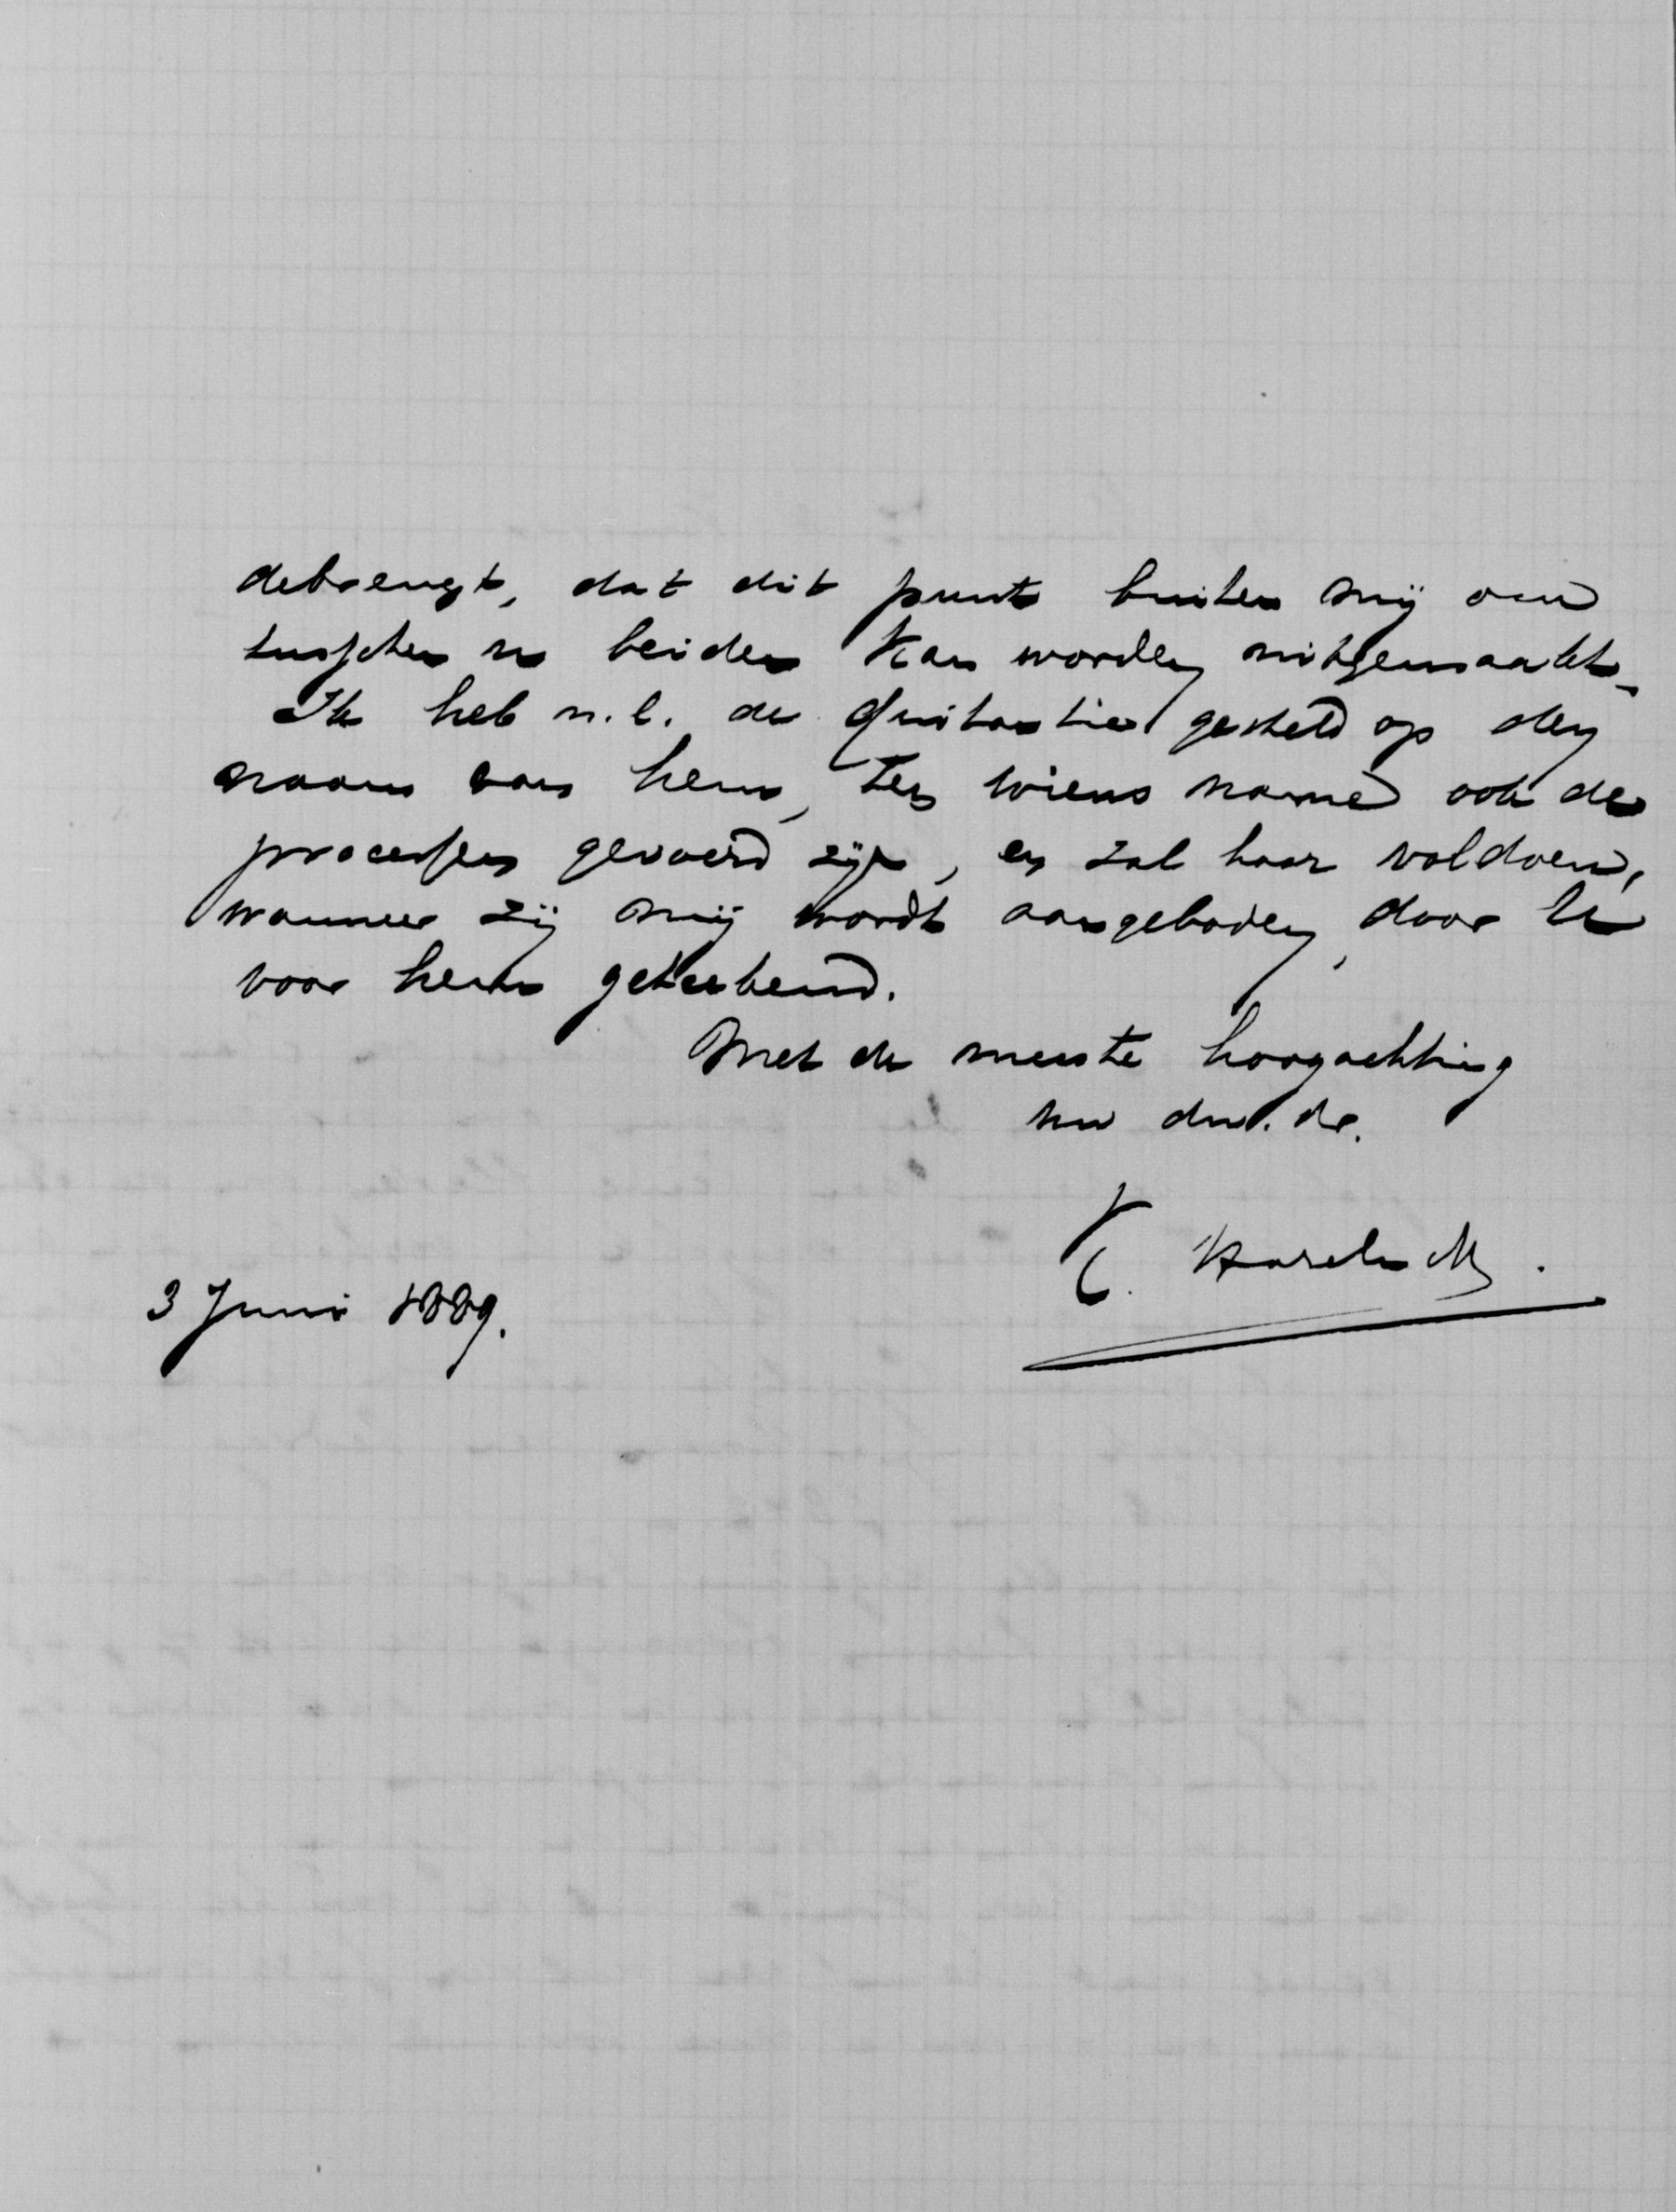 debrengt, dat dit punt buiten mij om
tusschen u beiden kan worden uitgemaakt.
Ik heb n.l. de quitantie gesteld op den
naam van hem, ten wiens name ook de
processen gevoerd zijn, en zal haar voldoen,
wanneer zij mij wordt aangeboden, door U
voor hem geteekend.
Met de meeste hoogachting
uw dw. dr.
3 Juni 1889.